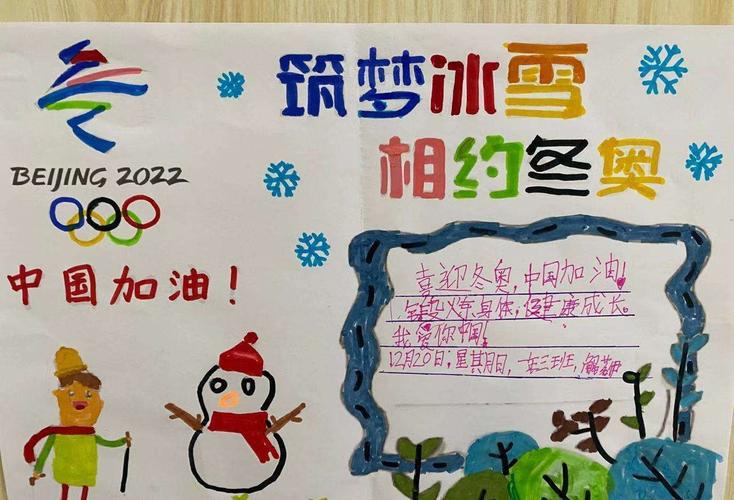 筑梦冰雪
相约冬奥
BEIJING 2022
中国加油！
喜迎冬奥，中国加油！
锻炼身体，健康成长。
我爱你中国！
12月20日，星期日，在三班，